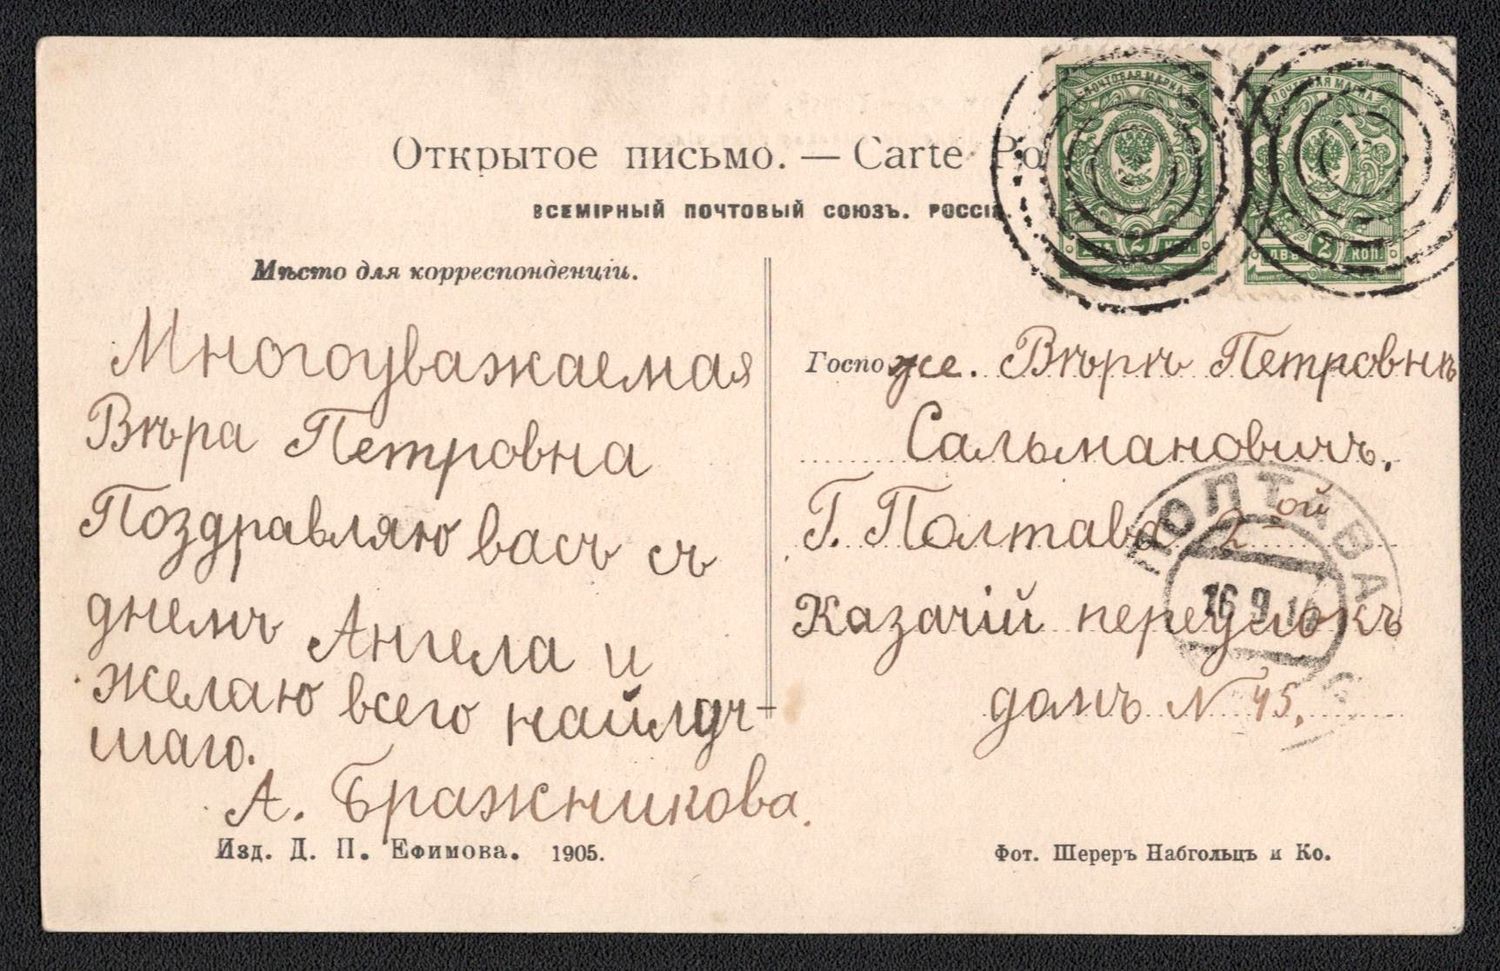 Открытое письмо. — Carte Po
ВСЕМІРНЫЙ ПОЧТОВЫЙ СОЮЗЪ. РОССІЯ.
ПОЧТОВАЯ МАРКА
2 КОП.
ПОЧТОВАЯ МАРКА
ДВѢ 2 КОП.
Мѣсто для корреспонденціи.
Многоуважаемая
Вѣра Петровна
Поздравляю васъ съ
днемъ Ангела и
желаю всего найлуч-
шаго.
А. Бражникова.
Госпоже. Вѣрѣ Петровнѣ
Сальмановичъ.
Г. Полтава 2ой
Казачій переулокъ
домъ N 45.
ПОЛТАВА
16 9 1
Изд. Д. П. Ефимова. 1905.
Фот. Шереръ Набгольцъ и Ко.